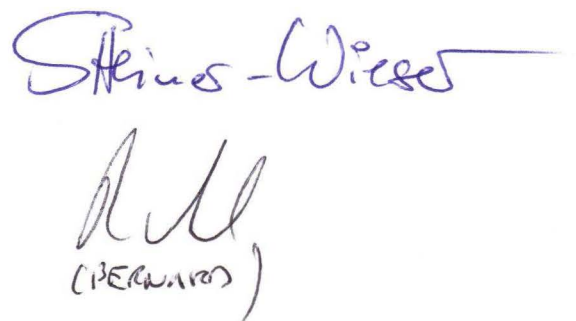 Steiner-Wieser
(BERNARD)